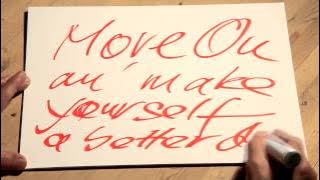 Move On
an' make
yourself
a better d